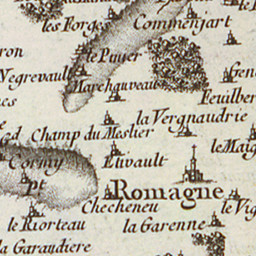 les Forges
Commenjart
le Puier
Negrevault
Marchauveau
Feuilber
la Vergnaudrie
Champ du Meslier
le Maig
Cormy
Etivault
pt
Romagne
Checheneu
le Vig
le Riorteau
la Garenne
la Garaudiere